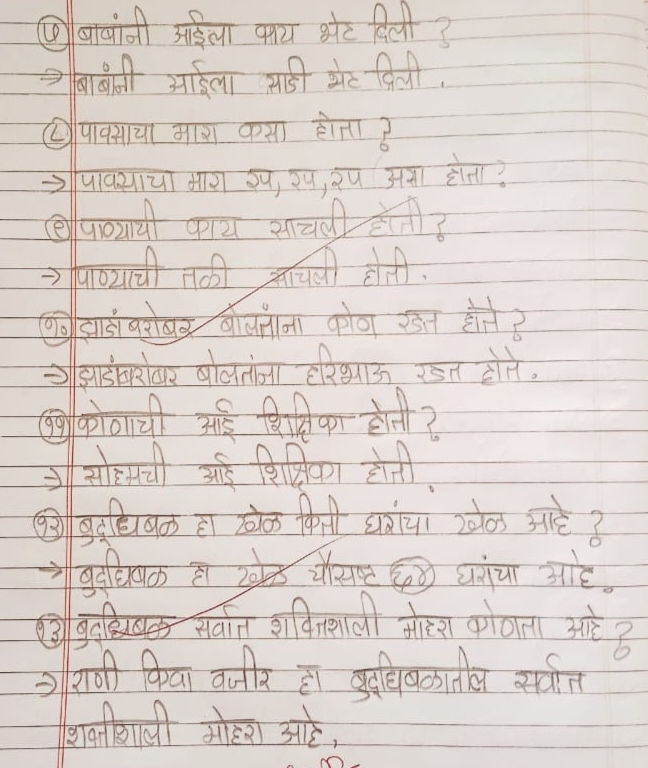 ७ बाबांनी आईला काय भेट दिली ?
→ बाबांनी आईला साडी भेट दिली .
८ पावसाचा मारा कसा होता ?
→ पावसाचा मारा रप, रप, रप असा होता ?
९ पाण्याची काय साचली होती ?
→ पाण्याची तळी साचली होती .
१० झाडांबरोबर बोलतांना कोण रडत होते ?
→ झाडांबरोबर बोलतांना हरिभाऊ रडत होते .
११ कोणाची आई शिक्षिका होती ?
→ सोहमची आई शिक्षिका होती .
१२ बुद्धिबळ हा खेळ किती घरांचा खेळ आहे ?
→ बुद्धिबळ हा खेळ चौसष्ट ६४ घरांचा आहे .
१३ बुद्धिबळ सर्वात शक्तिशाली मोहरा कोणता आहे ?
→ राणी किंवा वजीर हा बुद्धिबळातील सर्वात
शक्तीशाली मोहरा आहे .